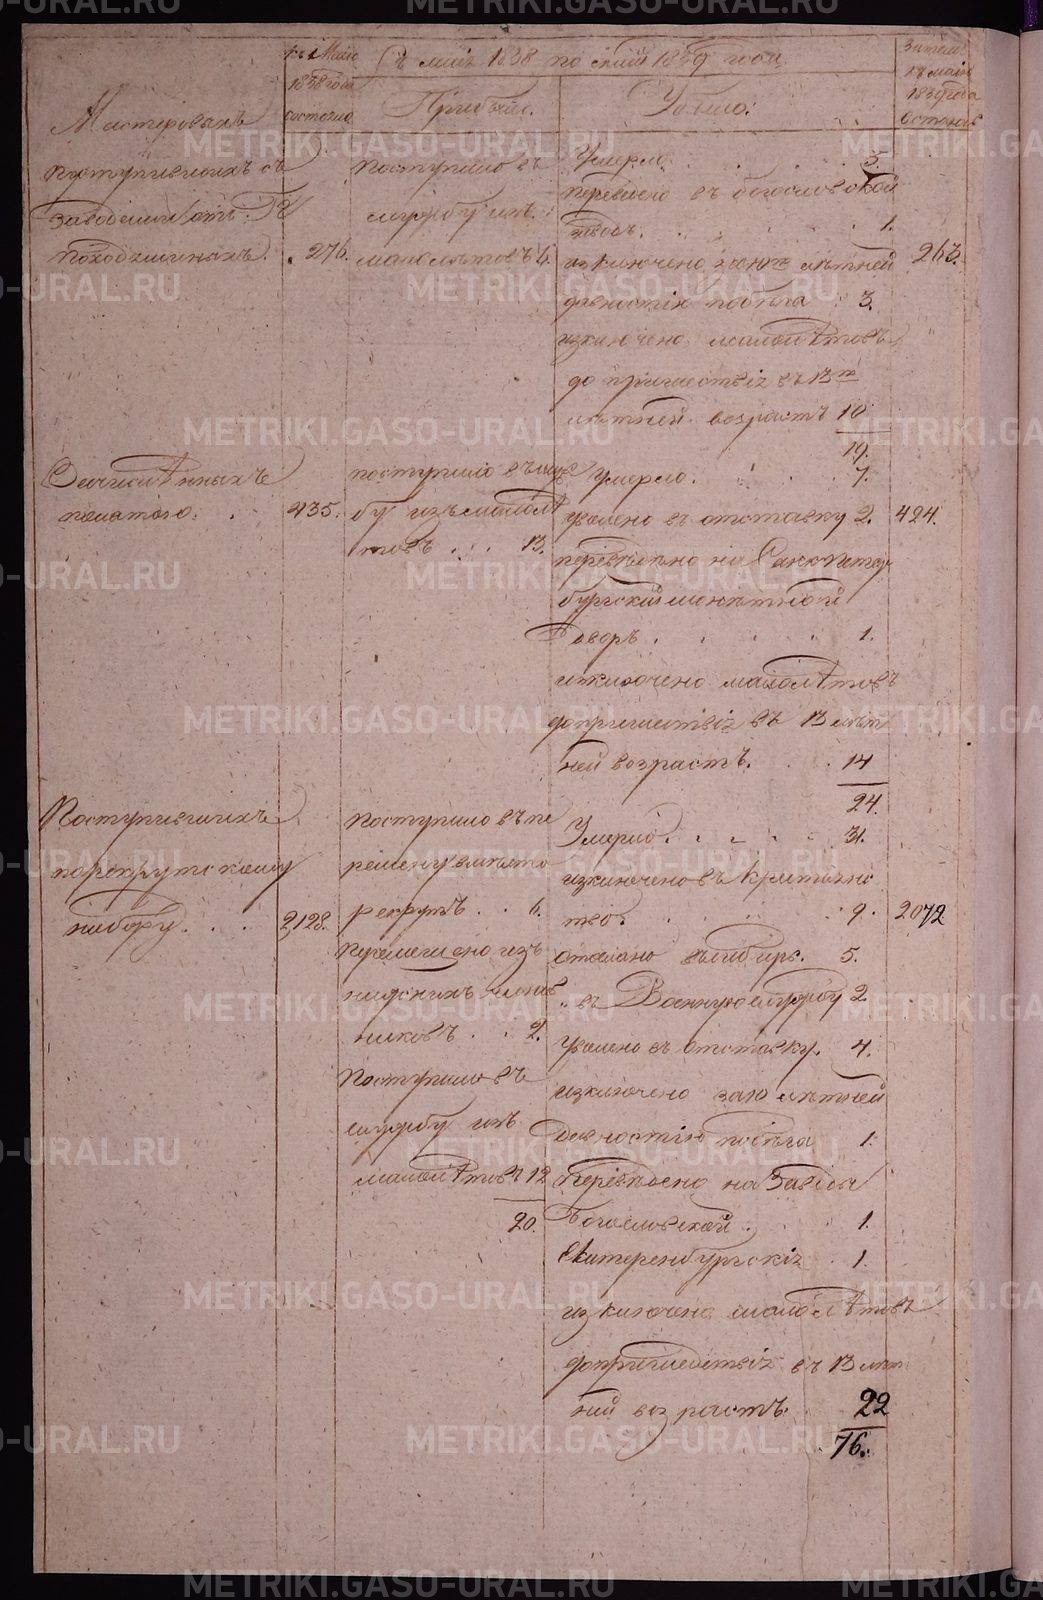 Мастеровыхъ
къ 1 Маію
1838 года
состояло
Съ маія 1838 по 1 маія 1839 года
Прибыло.
Убыло:
За темъ
къ 1 маія
1839 года
осталось
поступившихъ съ
заводами отъ Г
Походяшиныхъ
276.
поступило въ
службу изъ
малолѣтовъ 4.
Умерло 5.
переведено въ богословской
заводъ. 1.
изключено за 10 лѣтней
давностію побѣга 3.
изключено малолѣтовъ
до пришествія въ 13
лѣтней возрастъ 10
19.
263.
435.
поступило въ служ
бу изъ малолѣ
товъ 13.
Умерло. 7.
уволено въ отставку 2.
переведено на Санкпетер
бургскій монетной
дворъ. 1.
изключено малолѣтовъ
до пришествія въ 13 лѣт
ней возрастъ. 14
24.
424.
Поступившихъ
по рекрутскому
набору.
2128.
Поступило въ пе
ремену вместо
рекрутъ 6.
перемещено изъ
никовъ 2.
Поступило въ
службу изъ
малолѣтовъ 12
20.
Умерло. 31.
изключено въ крестьянс
тво. 9.
отослано въ Сибирь. 5.
въ Военную службу 2
уволено въ отставку. 4.
изключено за 10 лѣтней
давностію побѣга 1.
Переведено на Заводы
Богословской 1.
Екатеренбургскія 1.
изключено малолѣтовъ
до пришествія въ 13 лѣт
ней возрастъ. 22
76.
2072
METRIKI.GASO-URAL.RU